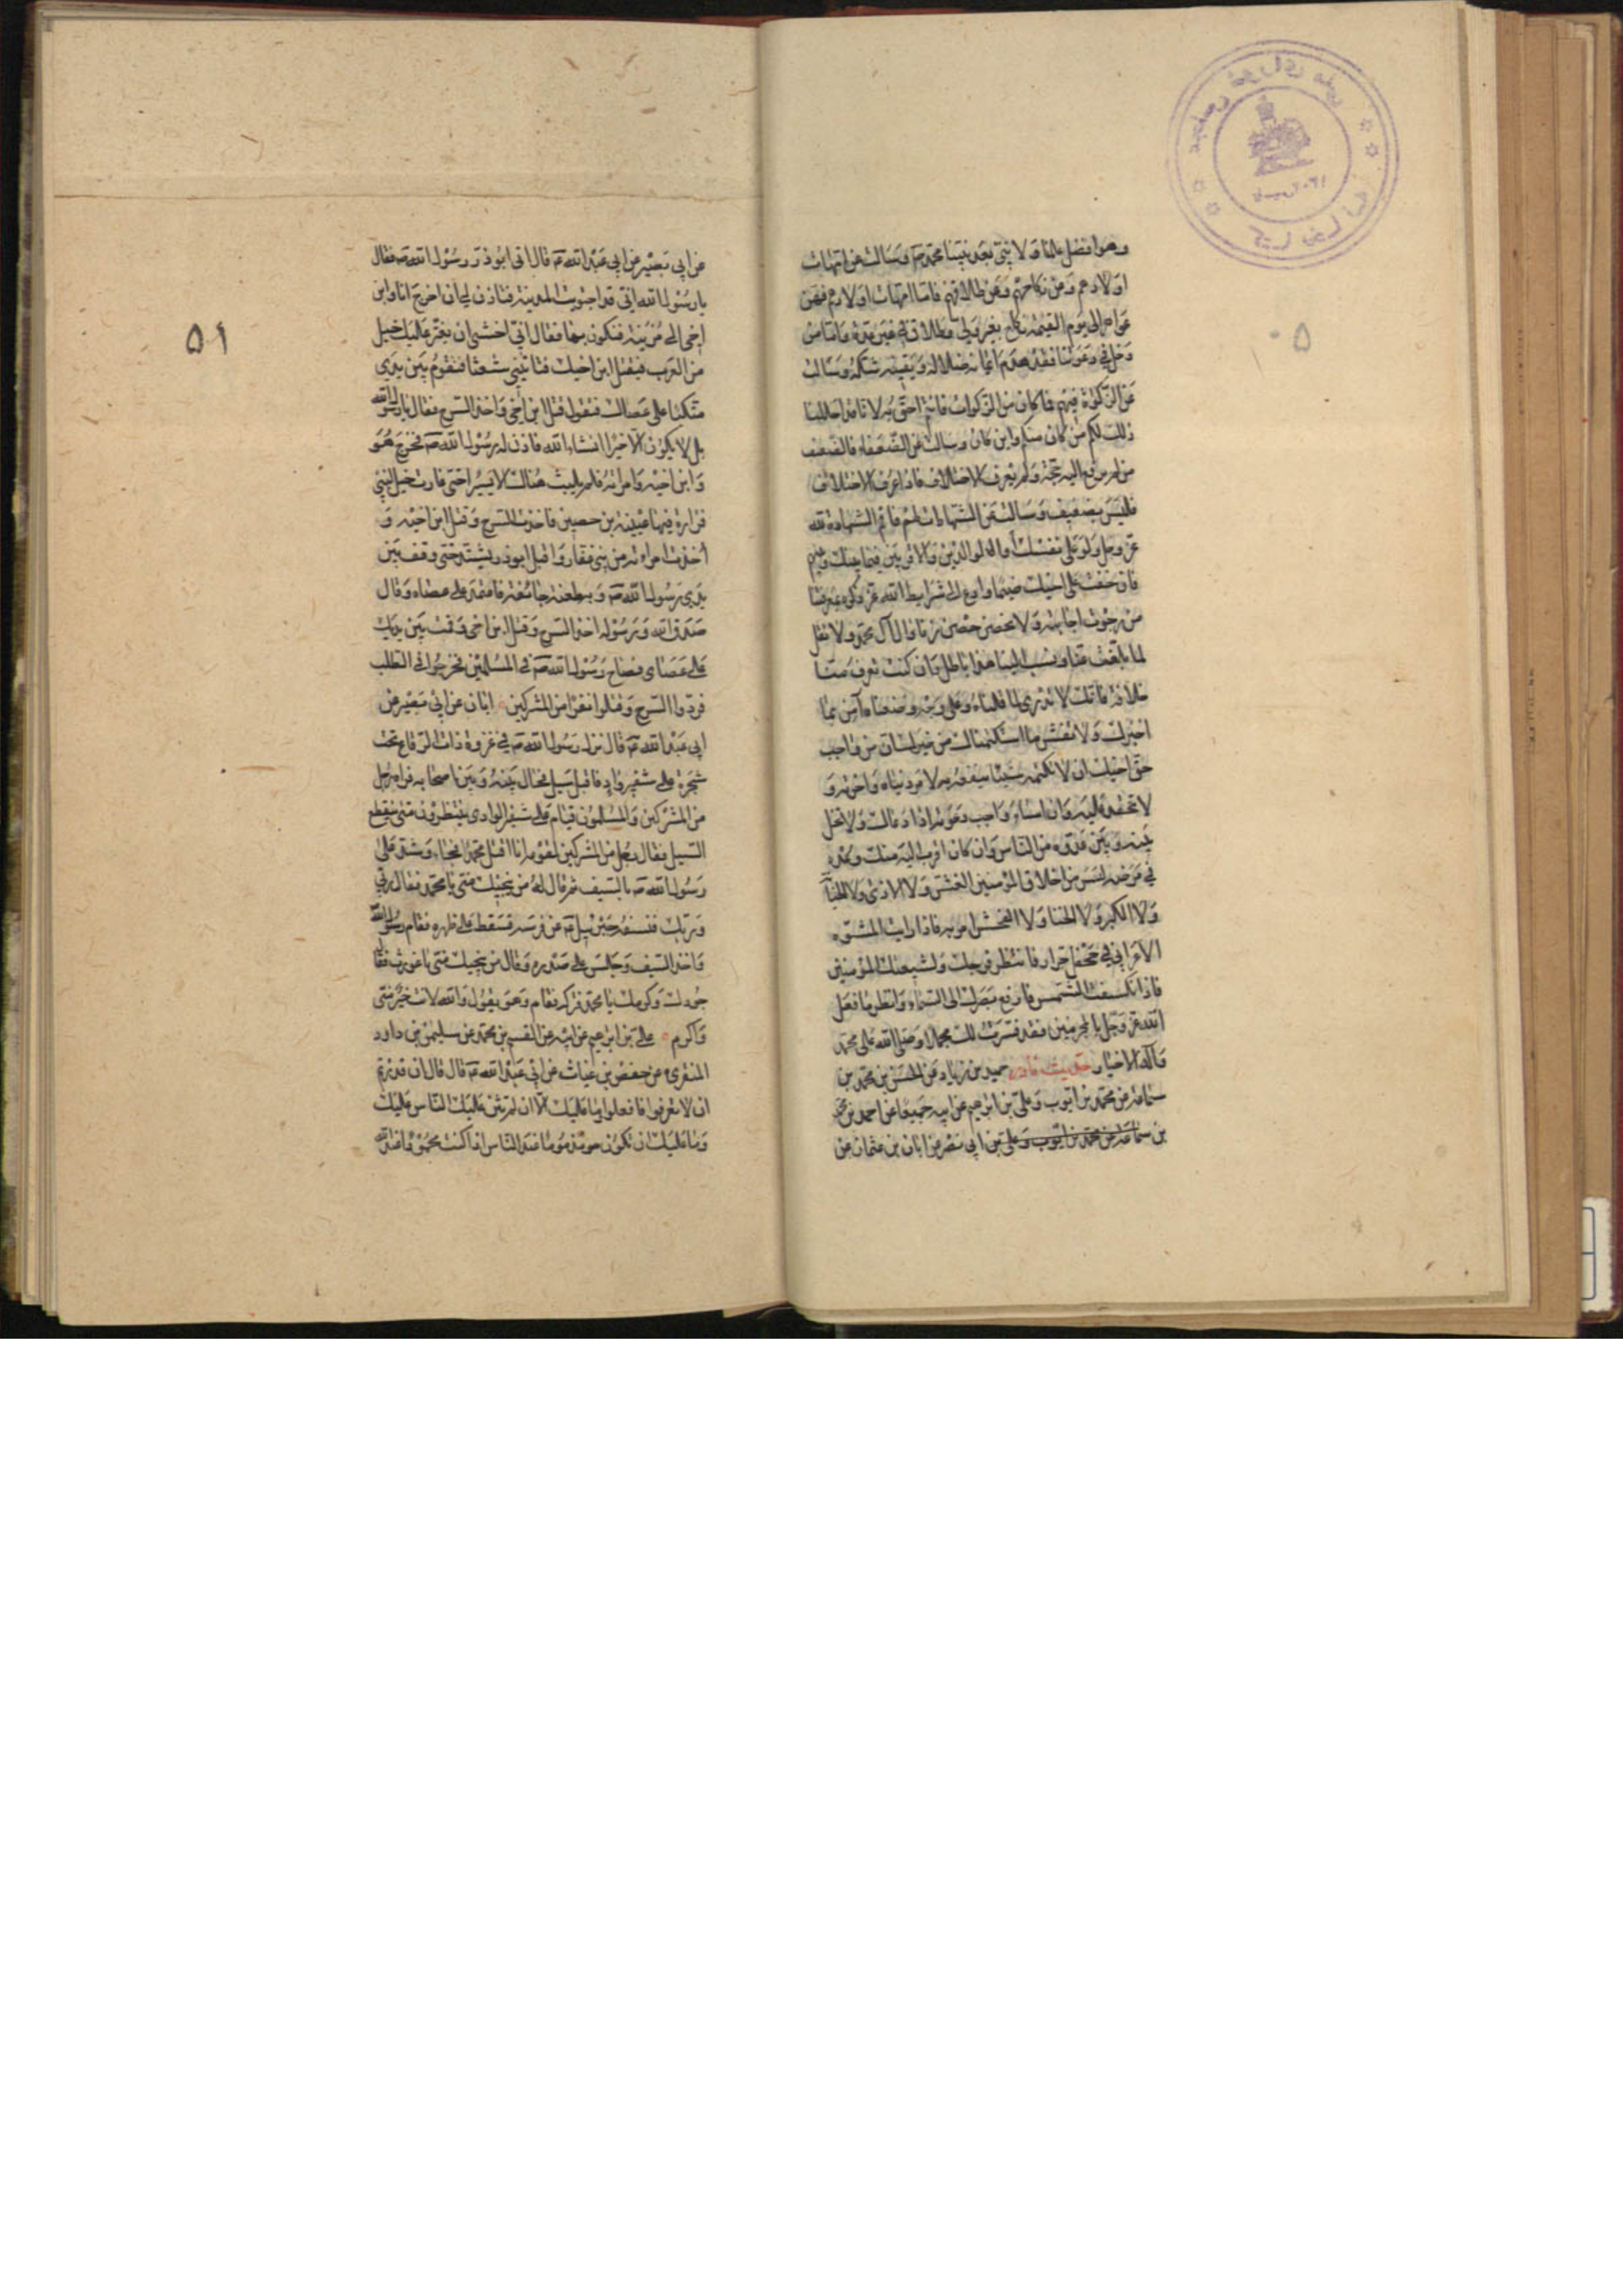 وهو افضل علمنا ولا نبي بعد نبينا محمد ص وسالت عن امهات
اولادهم وعن نكاحهم وعن طلاقهم فاما امهات اولادهم فهن
عواهر الى يوم القيمة نكاح بغير ولي وطلاق في غير عدة واما من
دخل في دعوتنا فقد هدم ايمانه ضلاله ويقينه شكه وسالت
عن الزكوة فيهم فما كان من الزكوات فانتم احق به لانا قد احللنا
ذلك لكم من كان منكم واين كان وسالت عن الضعفاء فالضعيف
من لم يرفع اليه حجة ولم يعرف الاختلاف فاذا عرف الاختلاف
فليس بضعيف وسالت عن الشهادات لهم فاقم الشهادة لله
عز وجل ولو على نفسك او الوالدين والاقربين فيما بينك وبينهم
فان خفت على اخيك ضيما فلا وادع الى شرايط الله عز ذكره بمعرفتنا
من رجوت اجابته ولا تحصن بحصن رياء ووال آل محمد ولا تقل
لما بلغك عنا ونسب الينا هذا باطل وان كنت تعرف منا
خلافه فانك لا تدري لما قلناه وعلى اي وجه وضعناه آمن بما
اخبرك ولا تفش ما استكتمناك من خبرك ان من واجب
حق اخيك ان لا تكتمه شيئا ينفعه به لامر دنياه واخرته و
لا تحقد عليه وان اساء واجب دعوته اذا دعاك ولا تخل
بينه وبين عدوه من الناس وان كان اقرب اليه منك وعده
في مرضه ليس من اخلاق المؤمنين الغش ولا الاذى ولا الخيانة
ولا الكبر ولا الخنا ولا الفحش ولا امر به فاذا رايت المشوه
الاعرابي في جحفل جرار فانتظر فرجك ولشيعتك المؤمنين
فاذا انكسفت الشمس فارفع بصرك الى السماء وانظر ما فعل
الله عز وجل بالمجرمين فقد فسرت لك جملا وصلى الله على محمد
وآله الاخيار حديث نادر حميد بن زياد عن الحسن بن محمد بن
سماعة عن محمد بن ايوب وعلي بن ابرهيم عن ابيه جميعا عن احمد بن محمد
بن سماعة عن محمد بن ايوب وعلي بن ابي نصر عن ابان بن عثمان عن
٥٠
عن ابي بصير عن ابي عبد الله ع قال اتى ابوذر رسول الله ص فقال
يا رسول الله اني قد اجتويت المدينة فتاذن لي ان اخرج انا وابن
اخي الى مزينة فنكون بها فقال اني اخشى ان يغير عليك خيل
من العرب فيقتل ابن اخيك فتاتيني شعثا فتقوم بين يدي
متكئا على عصاك فتقول قتل ابن اخي واخذ السرح فقال يا رسول الله
بل لا يكون الا خيرا انشاء الله فاذن له رسول الله ص فخرج هو
وابن اخيه وامراته فلم يلبث هناك الا يسيرا حتى غارت خيل لبني
فزارة فيها عيينة بن حصين فاخذت السرح وقتل ابن اخيه و
أخذت امراته من بني غفار واقبل ابوذر يشتد حتى وقف بين
يدي رسول الله ص وبه طعنة جائفة فاعتمد على عصاه وقال
صدق الله ورسوله اخذ السرح وقتل ابن اخي وقمت بين يديك
على عصاي فصاح رسول الله ص في المسلمين فخرجوا في الطلب
فردوا السرح وقتلوا نفرا من المشركين ابان عن ابي بصير عن
ابي عبد الله ع قال نزل رسول الله ص في غزوة ذات الرقاع تحت
شجرة على شفير واد فاقبل سيل فحال بينه وبين اصحابه فراه رجل
من المشركين والمسلمون قيام على شفير الوادي ينتظرون متى ينقطع
السيل فقال رجل من المشركين لقومه انا اقتل محمدا فجاء وشد على
رسول الله ص بالسيف ثم قال له من ينجيك مني يا محمد فقال ربي
وربك فنسفه جبرئيل ع عن فرسه فسقط على ظهره فقام رسول الله
واخذ السيف وجلس على صدره وقال من ينجيك مني يا غورث فقال
جودك وكرمك يا محمد فتركه فقام وهو يقول والله لانت خير مني
واكرم علي بن ابرهيم عن ابيه عن القسم بن محمد عن سليمن بن داود
المنقري عن حفص بن غياث عن ابي عبد الله ع قال قال ان قدرتم
ان لا تعرفوا فافعلوا وما عليك الا ان لم يثن عليك الناس عليك
وما عليك ان تكون مذموما عند الناس اذا كنت محمودا عند الله
٥١